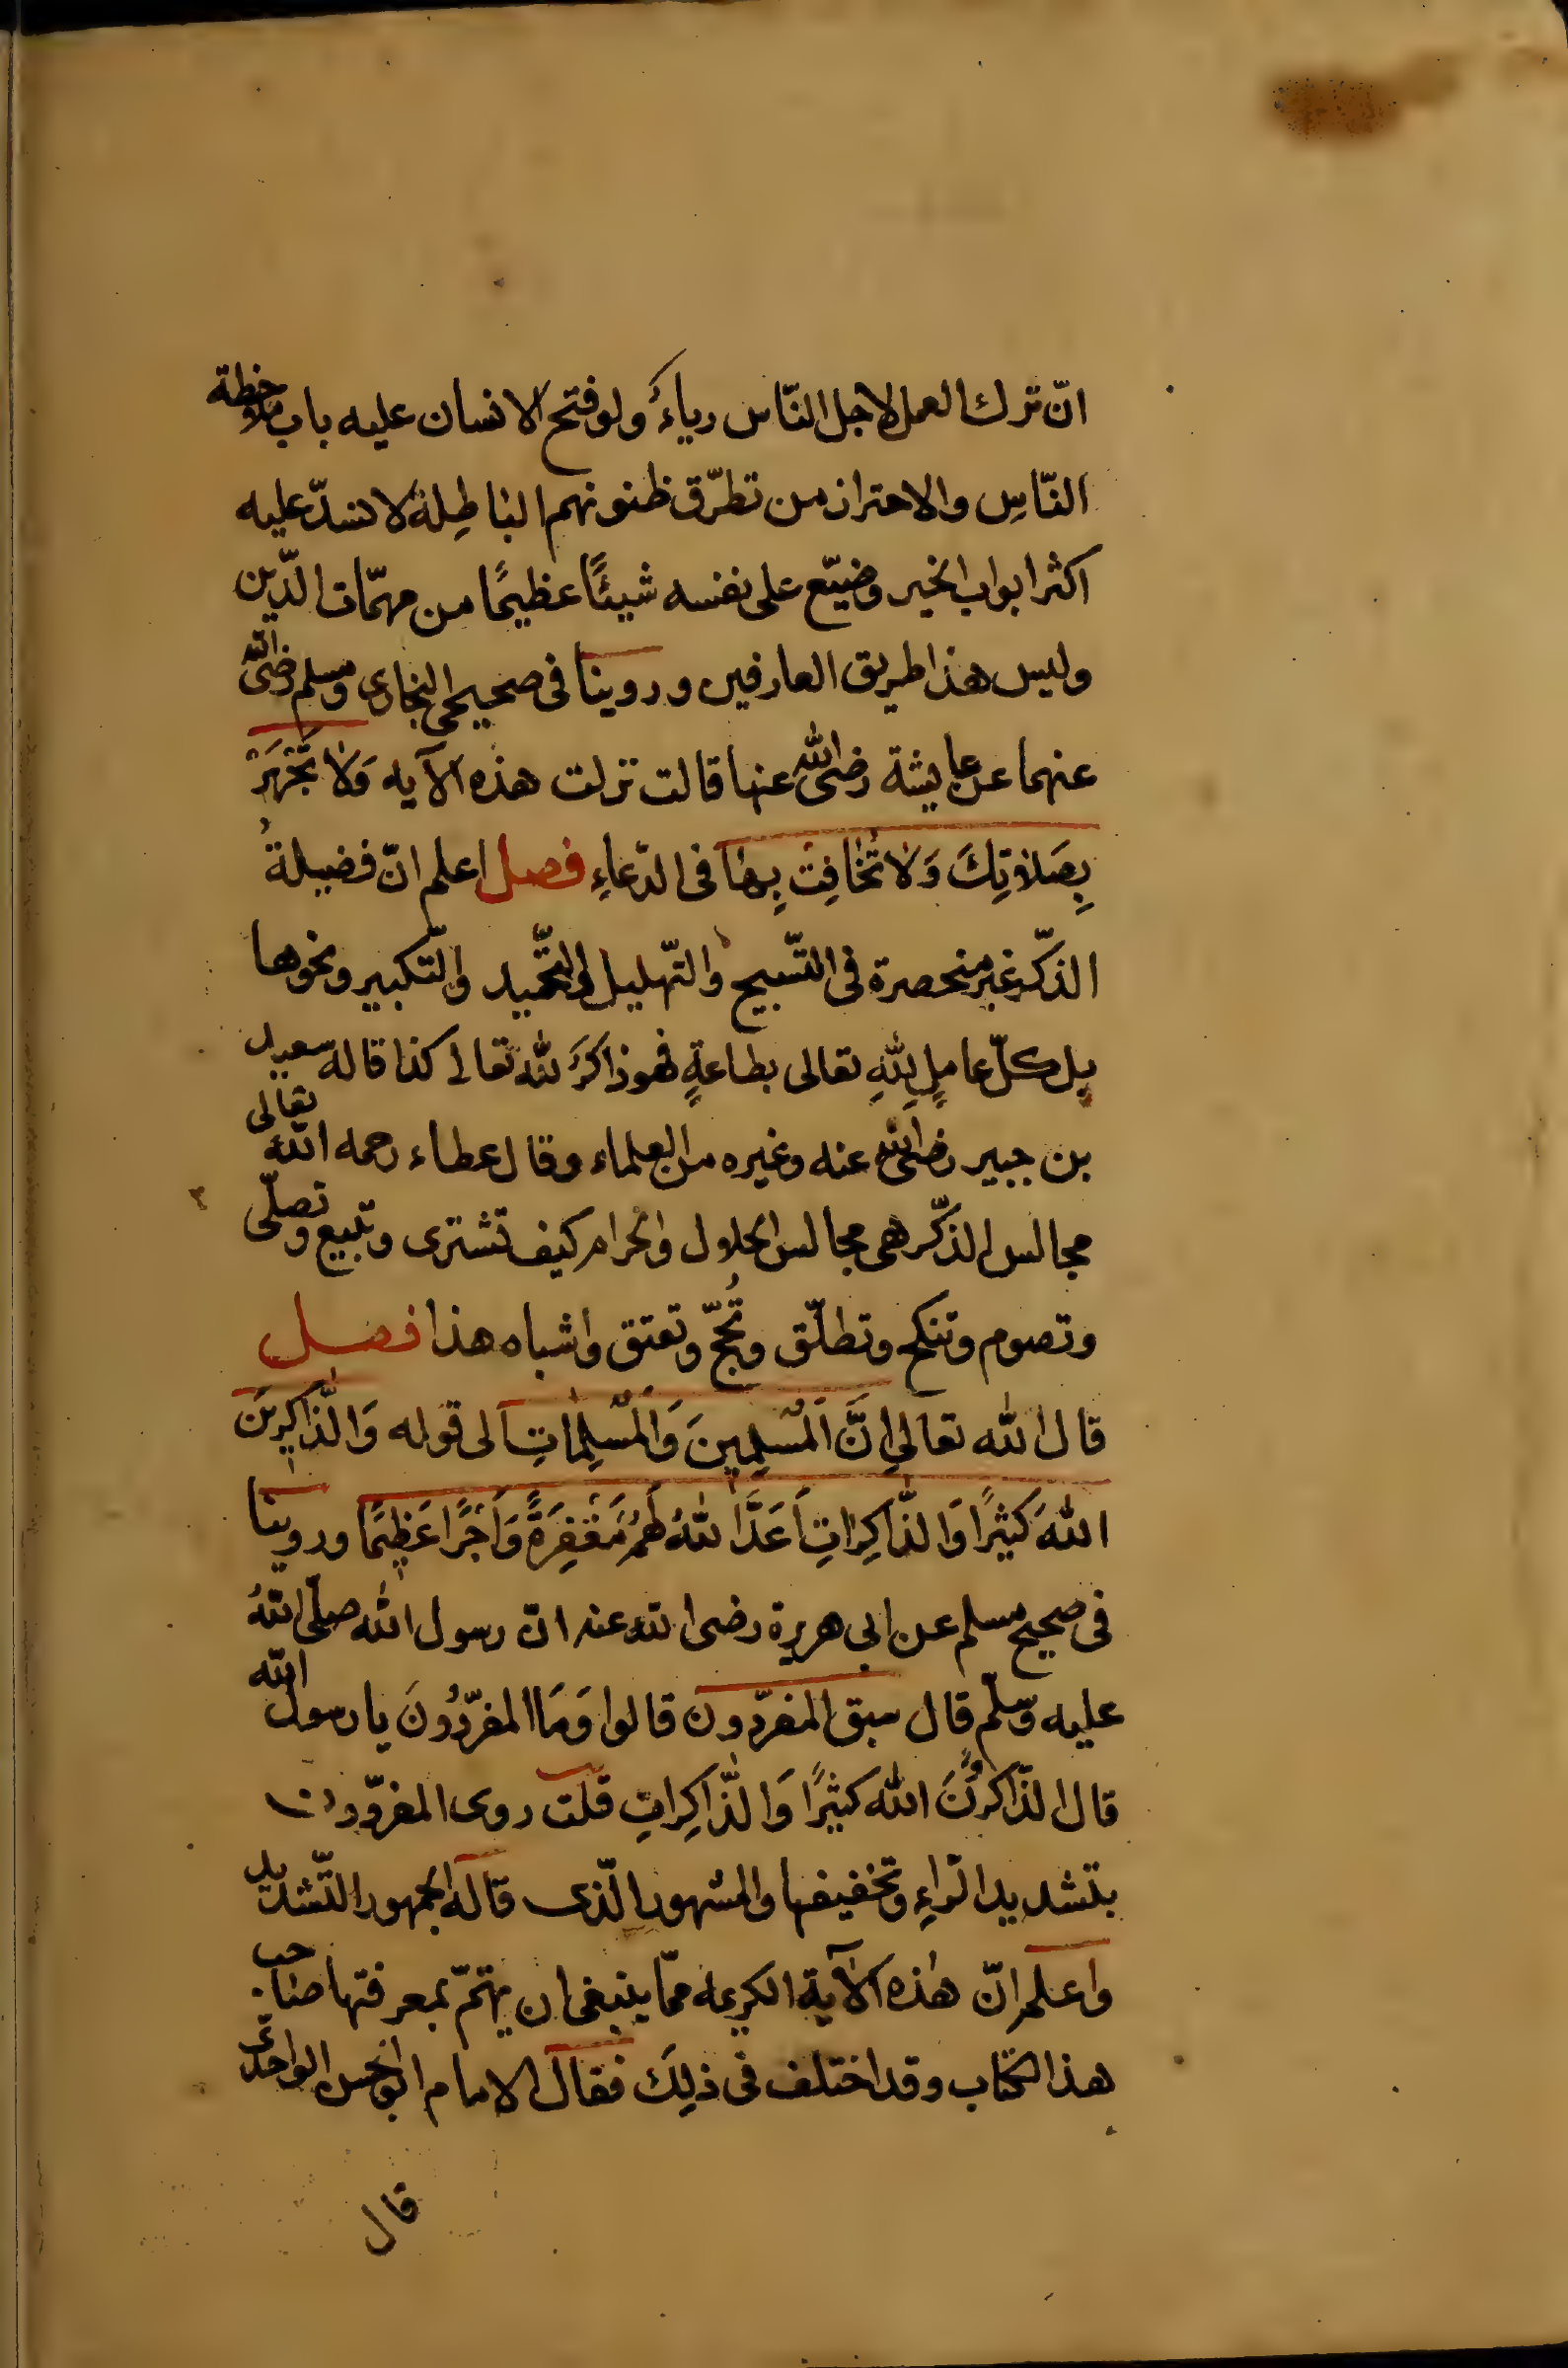 انّ ترك العمل لاجل النّاس رياءٌ ولو فتح الانسان عليه باب ملاحظة
النّاسِ والاحتراز من تطرّق ظنونهم الباطِلة لانسدّ عليه
اكثر ابواب الخير وضيّع على نفسه شيئًا عظيمًا من مهمّات الدّين
وليس هذا طريق العارفين وروينا فى صحيحى البخارى ومسلم رضى الله
عنهما عن عايشة رضى الله عنها قالت نزلت هذه الآيه وَلا تَجْهَرْ
بِصَلاتِكَ وَلا تُخَافِتْ بِهَا فى الدّعاءِ فصل اعلم انّ فضيلةَ
الذّكر غير منحصرة فى التّسبيح والتّهليل والتّحميد والتّكبير ونحوها
بل كلّ عاملٍ لِلّهِ تعالى بطاعةٍ فهو ذاكرٌ لله تعالى كذا قاله سعيد
بن جبير رضى الله عنه وغيره من العلماء وقال عطاء رحمه الله تعالى
مجالس الذّكر هى مجالس الحلال والحرام كيف تشترى وتبيع وتصلّى
وتصوم وتنكح وتطلّق وتُحجّ وتعتق واشباه هذا فصل
قال الله تعالى اِنَّ الْمُسْلِمِينَ وَالْمُسْلِمَاتِ الى قوله وَالذَّاكِرِينَ
اللهَ كَثِيرًا وَالذَّاكِرَاتِ اَعَدَّ اللهُ لَهُمْ مَغْفِرَةً وَاَجْرًا عَظِيمًا وروينا
فى صحيح مسلم عن ابى هريرة رضى الله عنه انّ رسول الله صلّى اللهُ
عليه وسلّم قال سبق المفرّدون قالوا وَمَا المفرّدُونَ يا رسول الله
قال الذّاكرُونَ الله كثيرًا وَالذّاكِرَاتِ قلت روى المفرّدون
بتشديد الرّاءِ وتخفيفها والمشهور الّذى قاله الجمهور التّشديد
واعلم انّ هٰذه الآية الكريمة ممّا ينبغى ان يهتمّ بمعرفتها صاحب
هذا الكتاب وقد اختلف فى ذلِكَ فقال الامام ابو الحسن الواحدى
قال